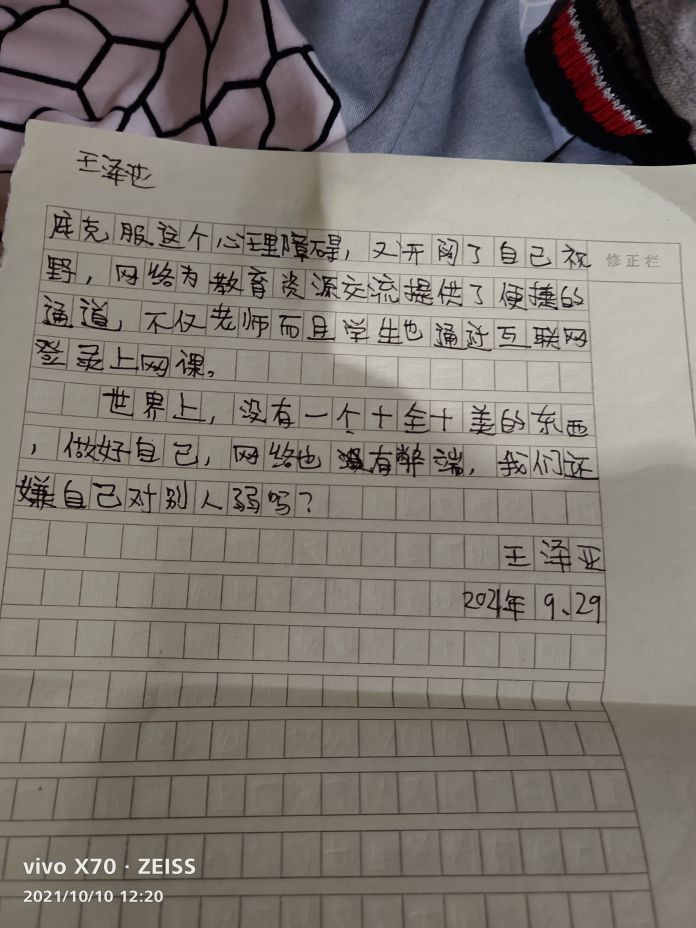 王泽亚
底克服这个心理障碍，又开阔了自己视
修正栏
野，网络为教育资源交流提供了便捷的
通道，不仅老师而且学生也通过互联网
登录上网课。
世界上，没有一个十全十美的东西
，做好自己，网络也没有弊端，我们还
嫌自己对别人弱吗？
王泽亚
2021年 9、29
vivo X70 · ZEISS
2021/10/10 12:20